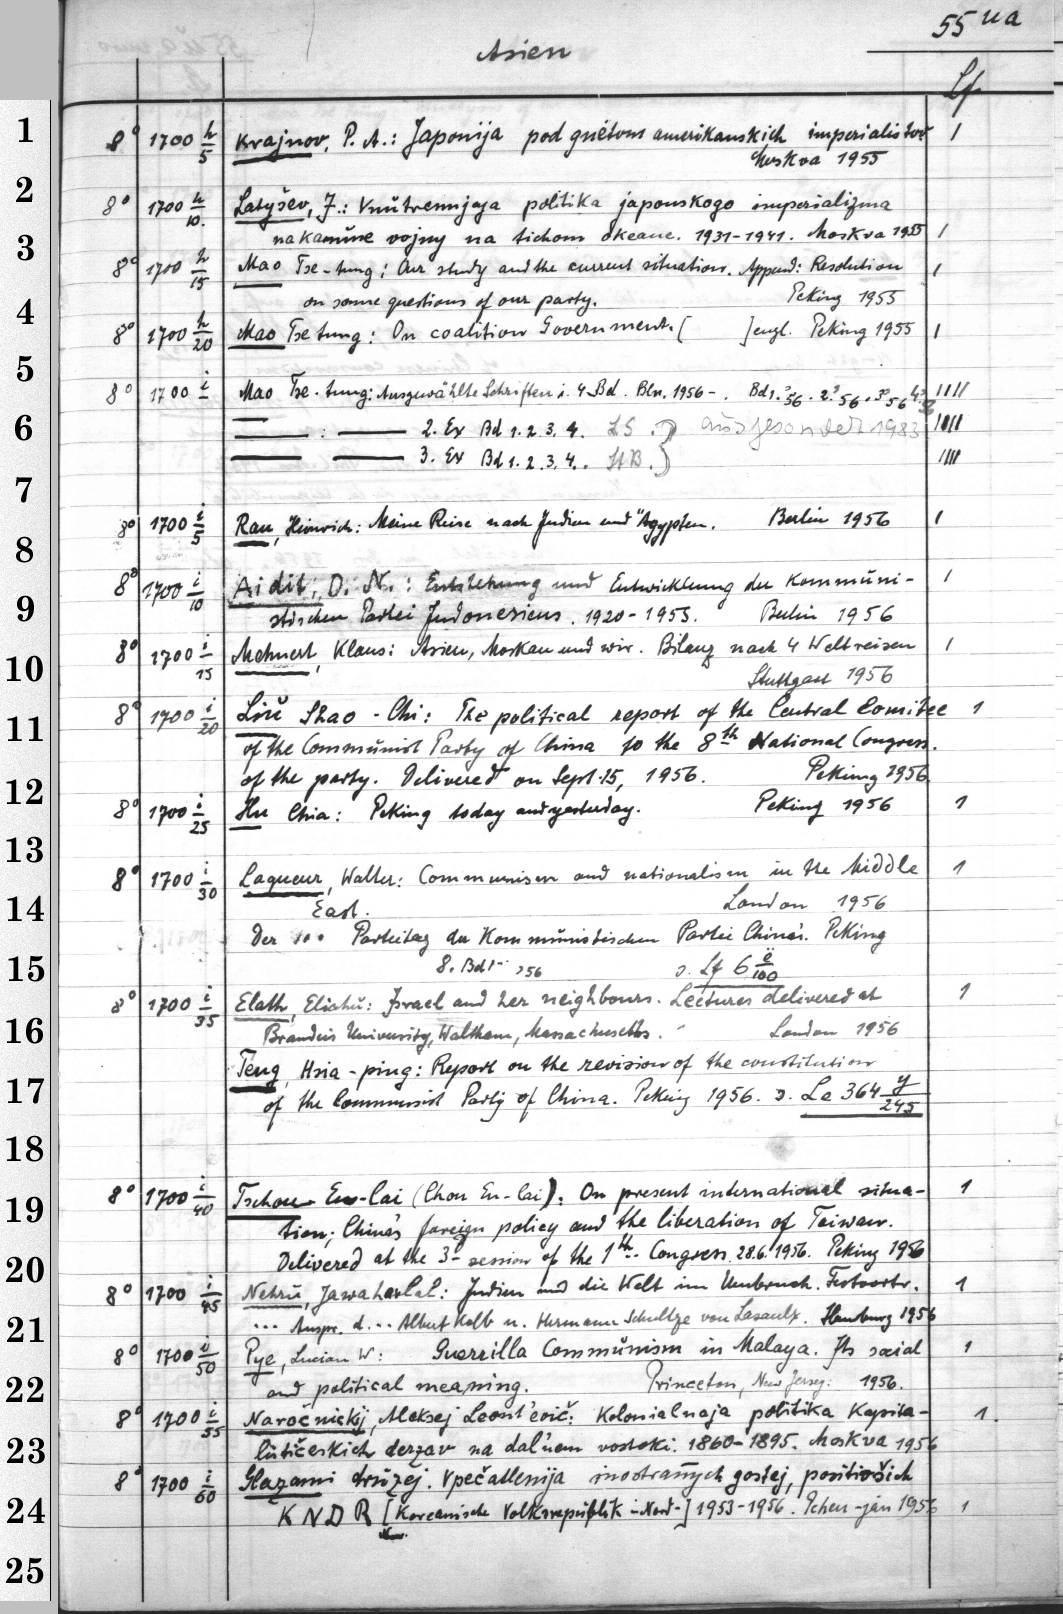 55 ua
Asien
Lf
1 8° 1700 h/5 Krajnov, P. A.: Japonija pod gnëtom amerikanskich imperialistov 1
Moskva 1955
2 8° 1700 h/10. Latyšev, J.: Vnutrennjaja politika japonskogo imperializma
3 nakanune vojny na tichom okeane. 1931-1941. Moskva 1955 1
8° 1700 h/15 Mao Tse-tung: Our study and the current situation. Append: Resolution 1
4 on some questions of our party. Peking 1955
8° 1700 h/20 Mao Tse tung: On coalition Government. [ ] engl. Peking 1955 1
5 8° 1700 i Mao Tse-tung: Ausgewählte Schriften i. 4 Bd. Bln. 1956 -. Bd 1. 56. 2. 56. 3. 56 4. 56 1111
6 : 2. Ex Bd 1. 2. 3. 4. LS. ausgesondert 1983 1111
3. Ex Bd 1. 2. 3. 4. StB. 1111
7
8° 1700 i/5 Rau, Heinrich: Meine Reise nach Indien und Ägypten. Berlin 1956 1
8
8° 1700 i/10 Aidit, D. N.: Entstehung und Entwicklung der Kommuni- 1
9 stischen Partei Indonesiens. 1920-1955. Berlin 1956
8° 1700 i/15 Mehnert, Klaus: Asien, Moskau und wir. Bilanz nach 4 Weltreisen 1
10 Stuttgart 1956
8° 1700 i/20 Liu Shao-Chi: The political report of the Central Comitee 1
11 of the Communist Party of China to the 8th National Congress.
of the party. Delivered on Sept. 15, 1956. Peking 1956
12 8° 1700 i/25 Hu Chia: Peking today and yesterday. Peking 1956 1
13
8° 1700 i/30 Laqueur, Walter: Communism and nationalism in the Middle 1
14 East. London 1956
Der ... Parteitag der Kommunistischen Partei China's. Peking
15 8. Bd 1 - 56 s. Lf 6 ë/100
8° 1700 i/35 Elath, Eliahu: Israel and her neighbours. Lectures delivered at 1
16 Brandeis University, Waltham, Massachusetts. London 1956
Teng, Hsia-ping: Report on the revision of the constitution
17 of the Communist Party of China. Peking 1956. s. La 364 y/245
18
8° 1700 i/40 Tschou En-lai (Chou En-lai): On present international situa- 1
19 tion; China's foreign policy and the liberation of Taiwan.
Delivered at the 3d session of the 1th. Congress. 28.6.1956. Peking 1956
20 8° 1700 i/45 Nehru, Jawaharlal: Indien und die Welt im Umbruch. Festvortr. 1
... Anspr. d. .. Albert Kolb u. Hermann Schultze von Lasaulx. Hamburg 1956
21 8° 1700 i/50 Pye, Lucian W: Guerrilla Communism in Malaya. Its social 1
22 and political meaning. Princeton, New Jersey: 1956.
8° 1700 i/55 Naročnickij, Aleksej Leont'evič: Kolonialnaja politika Kapita- 1.
23 lističeskich deržav na dal'nem vostoki. 1860-1895. Moskva 1956
8° 1700 i/60 Glazami druzej. Vpečatlenija inostrannych gostej, positivšich
24 KNDR [Koreanische Volksrepublik -Nord-] 1953-1956. Pchen-jan 1956 1
25